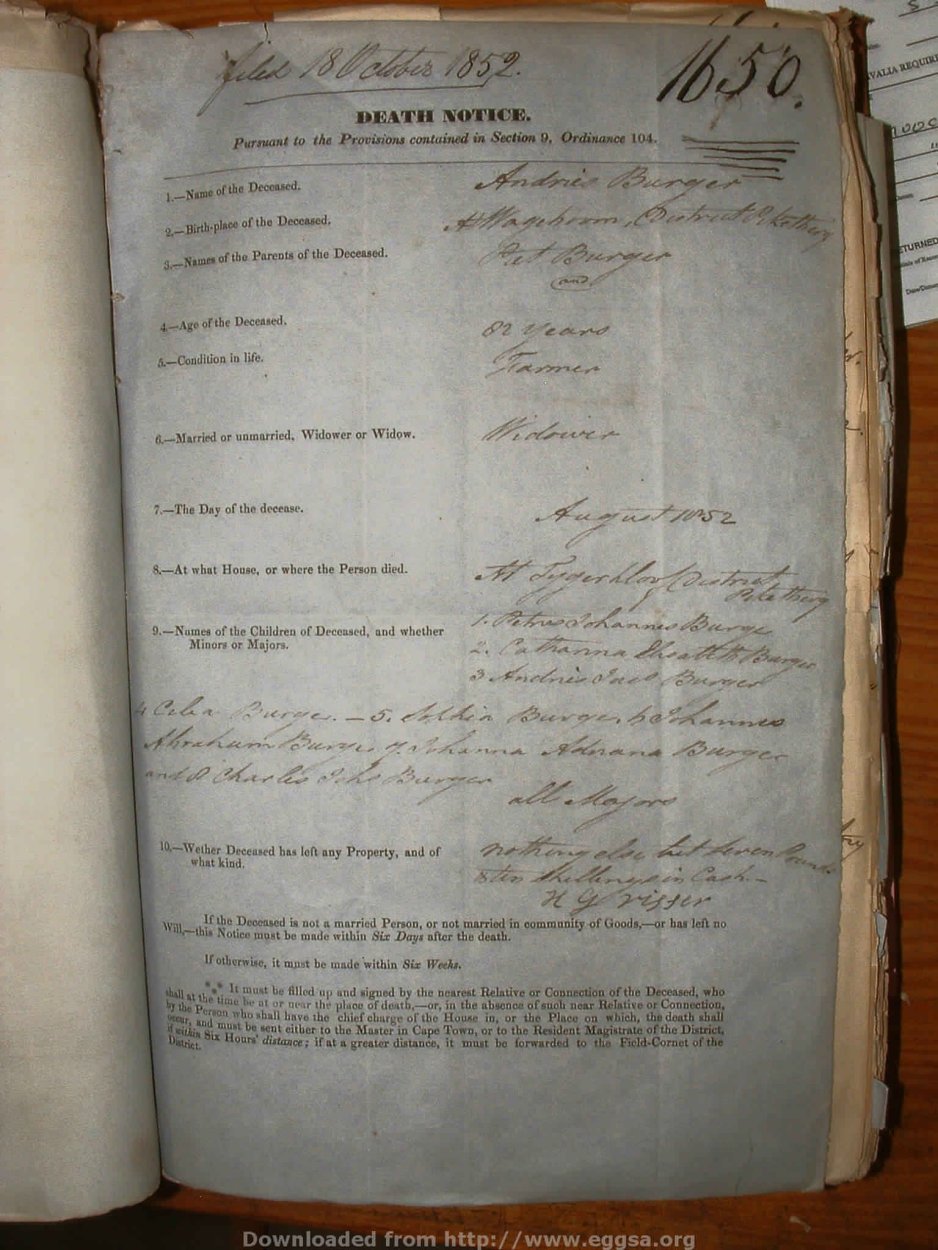 filed 18 October 1852.
1650.
DEATH NOTICE.
Pursuant to the Provisions contained in Section 9, Ordinance 104.
1.—Name of the Deceased. Andries Burger
2.—Birth-place of the Deceased. At Wagenboom, District
3.—Names of the Parents of the Deceased. Piet Burger
and
4.—Age of the Deceased. 82 Years
5.—Condition in life. Farmer
6.—Married or unmarried, Widower or Widow. Widower
7.—The Day of the decease. August 1852
8.—At what House, or where the Person died. At Tygerkloof District
9.—Names of the Children of Deceased, and whether
Minors or Majors.
1. Petrus Johannes Burger
2. Catharina Burger
3 Andries Burger
4 Burger. — 5. Burger, 6 Johannes
Abraham Burger 7. Johanna Adriana Burger
and 8 Charles Johs Burger
all Majors
10.—Wether Deceased has left any Property, and of
what kind.
nothing else but seven Pounds
& ten Shillings in Cash.—
If the Deceased is not a married Person, or not married in community of Goods,—or has left no
Will,—this Notice must be made within Six Days after the death.
If otherwise, it must be made within Six Weeks.
*** It must be filled up and signed by the nearest Relative or Connection of the Deceased, who
shall at the time be at or near the place of death,—or, in the absence of such near Relative or Connection,
by the Person who shall have the chief charge of the House in, or the Place on which, the death shall
occur, and must be sent either to the Master in Cape Town, or to the Resident Magistrate of the District,
if within Six Hours' distance; if at a greater distance, it must be forwarded to the Field-Cornet of the
District.
Downloaded from http://www.eggsa.org